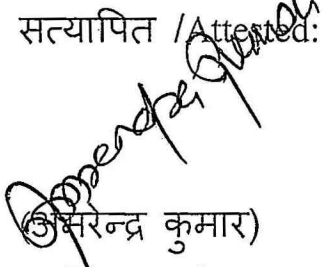 सत्यापित /Attested:
Amarendra Kumar
(अमरेन्द्र कुमार)